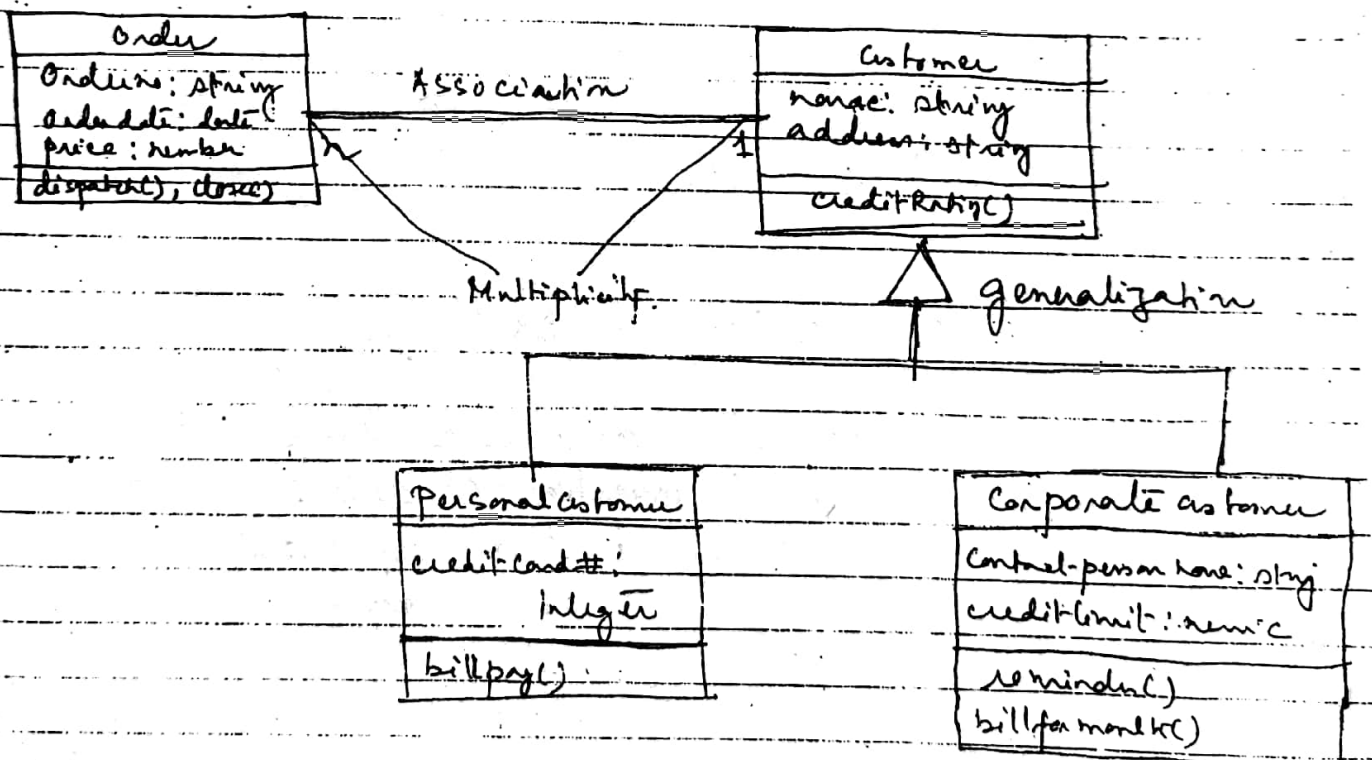 Order
Orderno: string
orderdate: date
price: number
dispatch(), close()
Association
n
1
Customer
name: string
address: string
creditRating()
Multiplicity.
generalization
Personal Customer
credit-Card#:
Integer
billpay()
Corporate Customer
Contact-person name: string
creditlimit:
reminder()
billformonth()